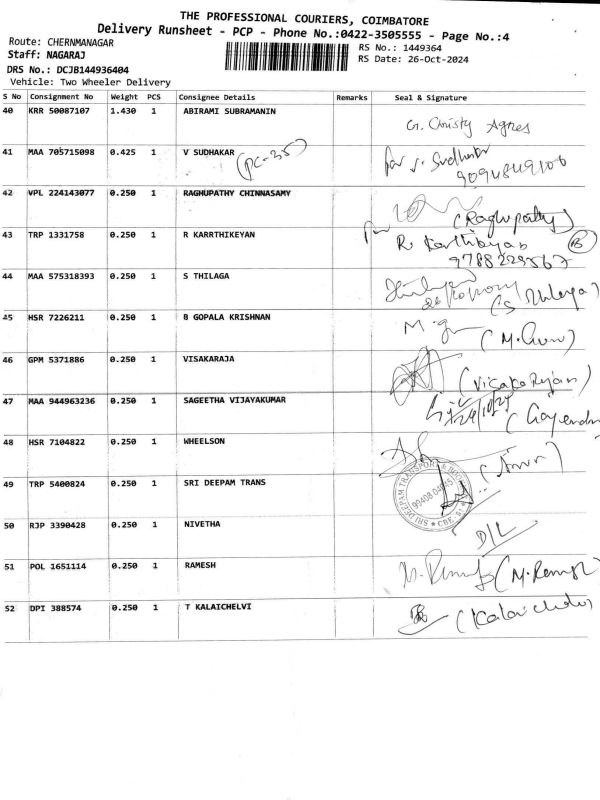 THE PROFESSIONAL COURIERS, COIMBATORE
Delivery Runsheet - PCP - Phone No.:0422-3505555 - Page No.:4
Route: CHERNMANAGAR
RS No.: 1449364
Staff: NAGARAJ
RS Date: 26-Oct-2024
DRS No.: DCJB144936404
Vehicle: Two Wheeler Delivery
S No Consignment No Weight PCS Consignee Details Remarks Seal & Signature
40 KRR 50087107 1.430 1 ABIRAMI SUBRAMANIN
G. Christy Agnes
41 MAA 705715098 0.425 1 V SUDHAKAR (PC-35)
for V. Sudhakar
9094849100
42 VPL 224143077 0.250 1 RAGHUPATHY CHINNASAMY
(Raghupathy)
43 TRP 1331758 0.250 1 R KARRTHIKEYAN
R. Karthikeyan
9788229567
44 MAA 575318393 0.250 1 S THILAGA
(S Thilaga)
45 HSR 7226211 0.250 1 B GOPALA KRISHNAN
46 GPM 5371886 0.250 1 VISAKARAJA
47 MAA 944963236 0.250 1 SAGEETHA VIJAYAKUMAR
48 HSR 7104822 0.250 1 WHEELSON
49 TRP 5400824 0.250 1 SRI DEEPAM TRANS
SRI DEEPAM TRANSPORT &
50 RJP 3390428 0.250 1 NIVETHA
D/L
51 POL 1651114 0.250 1 RAMESH
(M. Ramesh)
52 DPI 388574 0.250 1 T KALAICHELVI
(Kalaichelvi)